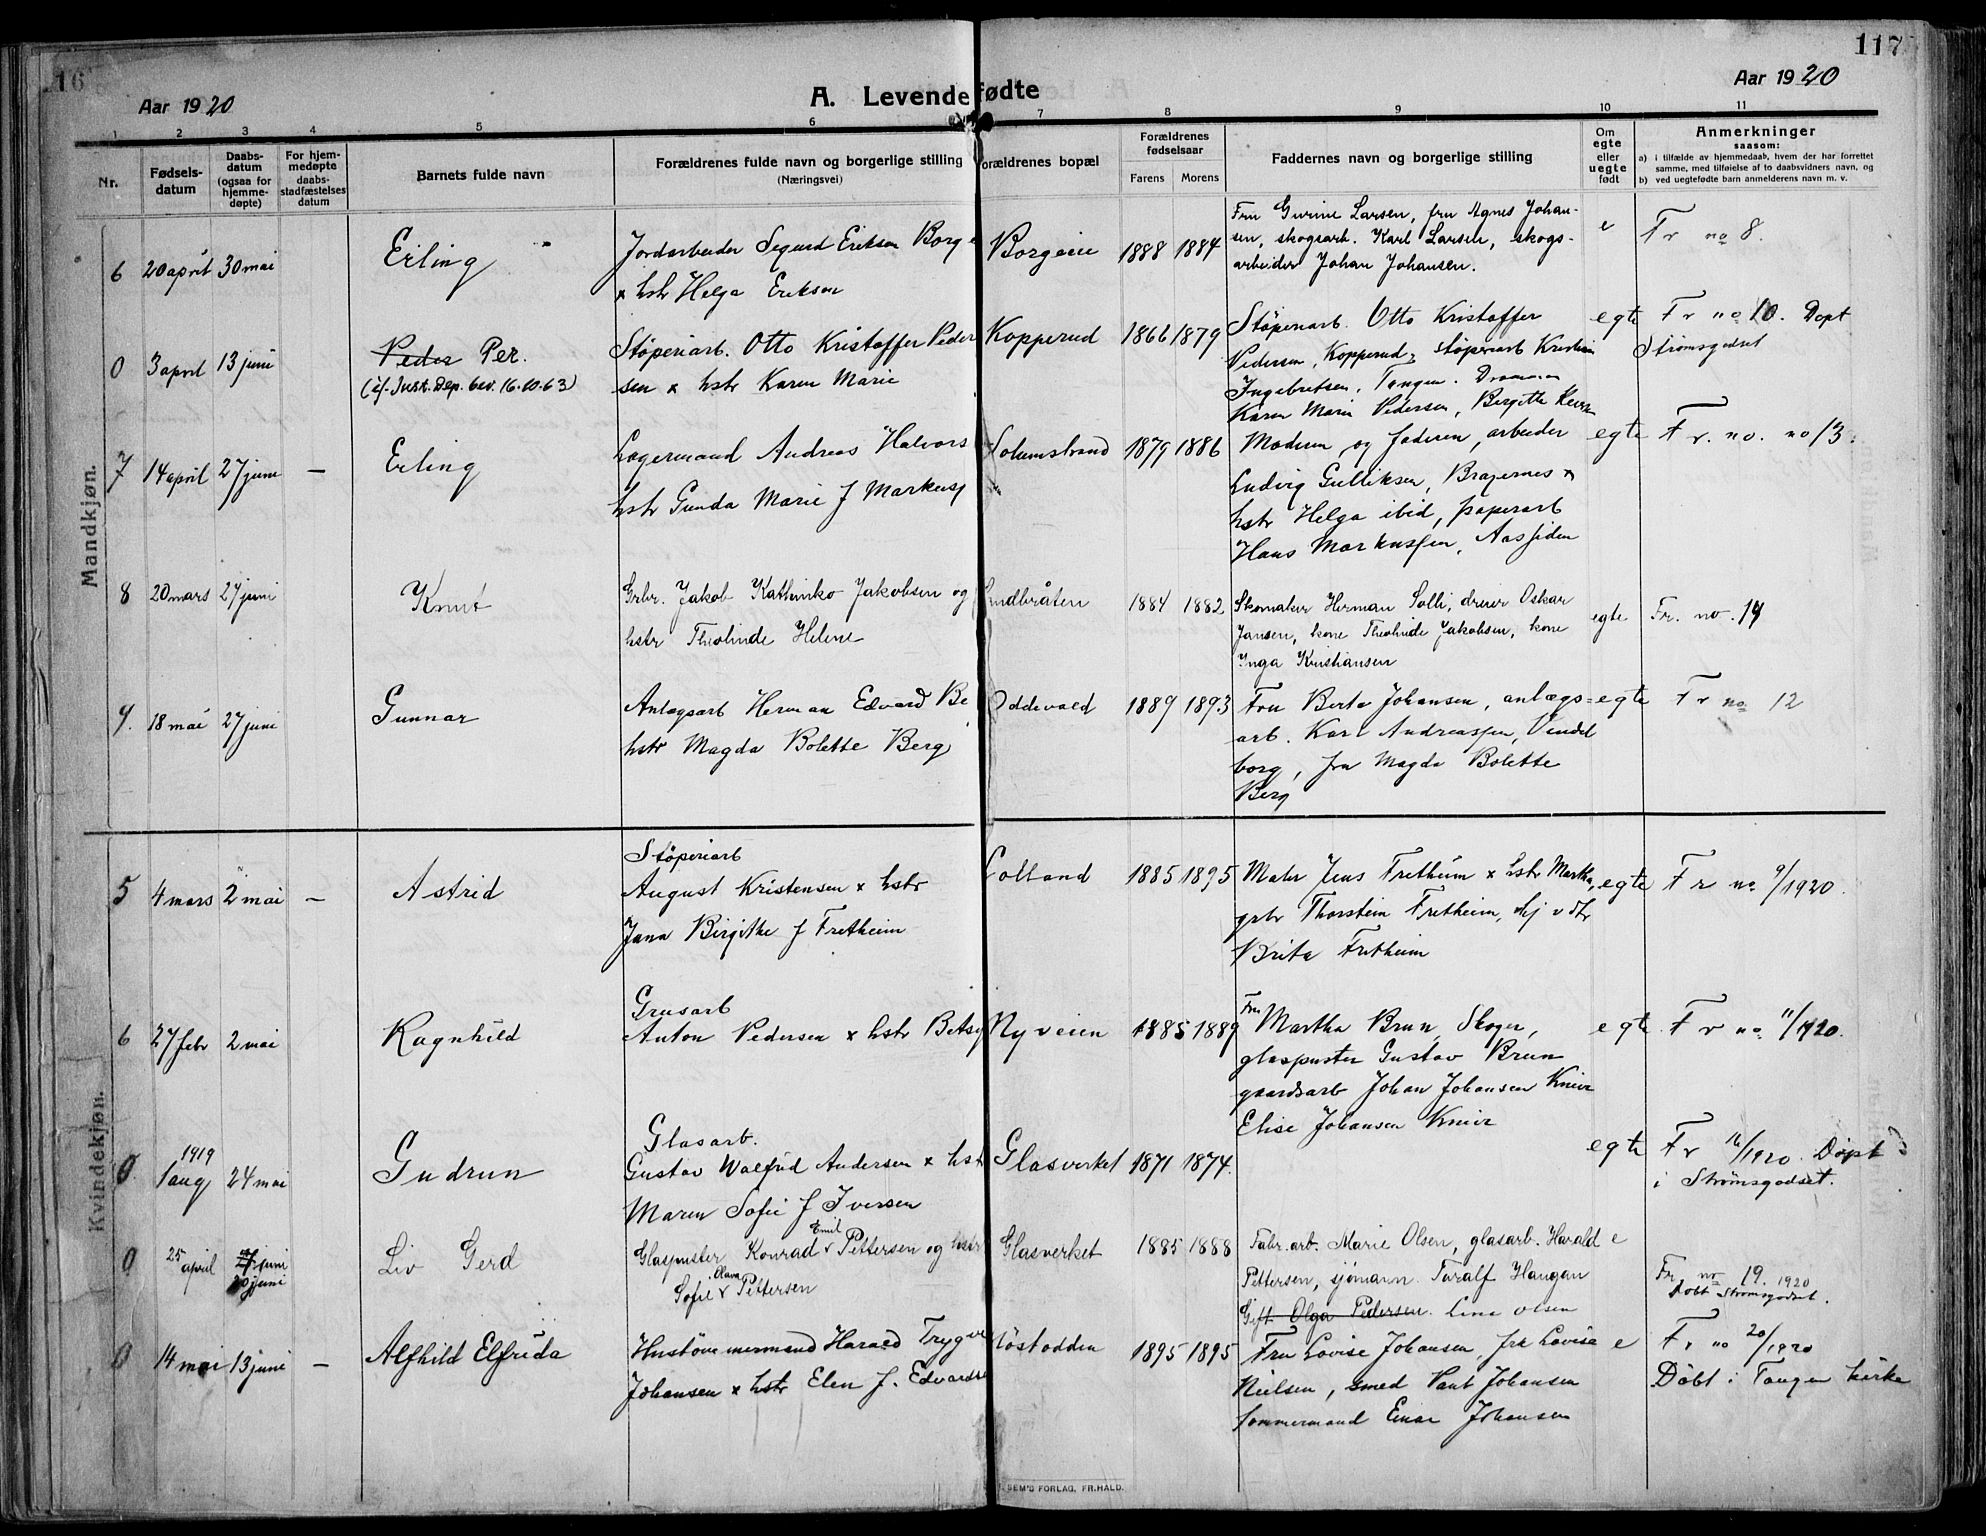 16
117
Aar 1920
A. Levendefødte
Aar 1920
1 2 3 4 5 6 7 8 9 10 11
Nr.
Fødsels-
datum
Daabs-
datum
(ogsaa for
hjemme-
døpte)
For hjem-
medøpte
daabs-
stadfæstelses
datum
Barnets fulde navn
Forældrenes fulde navn og borgerlige stilling
(Næringsvei)
orældrenes bopæl
Forældrenes
fødselsaar
Farens Morens
Faddernes navn og borgerlige stilling
Om
egte
eller
uegte
født
Anmerkninger
saasom:
a) i tilfælde av hjemmedaab, hvem der har forrettet
samme, med tilføielse af to daabsvidners navn, og
b) ved uegtefødte barn anmelderens navn m. v.
Mandkjøn.
6 20 april 30 mai Erling
Jordarbeider Sigurd Eriksen Borge
x hstr Helga Eriksen
Borgeie 1888 1884
Fru Gurine Larsen, fru Agnes Johan-
sen, skogsarb. Karl Larsen, skogs-
arbeider Johan Johansen.
e Fr no 8.
0 3 april 13 juni Peder Per.
(cf. Just. Dep. bev. 16.10.63)
Støperiarb. Otto Kristoffer Peder
sen x hstr Karen Marie
Kopperud 1866 1879
Støperiarb. Otto Kristoffer
Pedersen, Kopperud, støperiarb Kristian
Ingebretsen, Tangen. Drammen
Karen Marie Pedersen, Birgitte
egte Fr no 10. Døpt
Strømsgodset
7 14 april 27 juni – Erling
Lagermand Andreas Halvors
hstr Gunda Marie f Markus
Solumstrand 1879 1886
Moderen og faderen, arbeider
Ludvig Gulliksen, Bragernes x
hstr Helga ibid, papirarb
Hans Markussen, Aassiden
egte Fr. no. no 13.
8 20 mars 27 juni Knut
Grbr. Jakob Kathinko Jakobsen og
hstr Theolinde Helene
undbråten 1884 1882
Skomaker Herman Solli, dreier Oskar
Jansen, kone Theolinde Jakobsen, kone
Inga Kristiansen
egte Fr. no. 14
9. 18 mai 27 juni Gunnar
Anlægsarb Herman Edvard Be
hstr Magda Bolette Berg
Oddevald 1889 1893
Fru Berta Johansen, anlægs=
arb. Karl Andreassen, Vindel
borg, fru Magda Bolette
Berg
egte Fr no 12
Kvindekjøn.
5 4 mars 2 mai – Astrid
Støperiarb
August Kristensen x hstr
Jana Birgithe f Fretheim
Lolland 1885 1895
Malr Jens Fretheim x hstr Martha,
grbr Thorstein Fretheim, v dtr
Brita Fretheim
egte Fr no 9/1920.
6 27 febr 2 mai Ragnhild
Grusarb
Anton Pedersen x hstr Betsy
Nyveien 1885 1889
Fru Martha Brun, Skoger,
glaspuster Gustav Brun
gaardsarb Johan Johansen Kniv
Elise Johansen Kniv
egte Fr no 11/1920.
0 1919
1 aug 24 mai Gudrun
Glasarb.
Gustav Walfrid Andersen x hst
Maren Sofie f Iversen
Glasverket 1871 1874.
egte Fr 16/1920. Døpt
i Strømsgodset.
0 25
april 27 juni
20 juni
Liv Gerd
Glaspuster Konrad Emil Pettersen og hstr
Sofie Olava Pettersen
Glasverket 1885 1888
Fabr.arb. Marie Olsen, glasarb. Harald
Pettersen, sjømann. Taralf Haugan
Gift Olga Pedersen. Lina Olsen
e Fr. no 19. 1920
Døbt Strømsgodset.
0 14 mai 13 juni – Alfhild Elfrida
Hustømmermand Harald Trygve
Johansen x hstr Elen f. Edvards
østodden 1895 1895
Fru Lovise Johansen, frk Lovise
Nielsen, smed Johansen
tømmermand Einar Johansen
e Fr no 20/1920
Døbt i Tangen kirke
SEM'S FORLAG, FR.HALD.